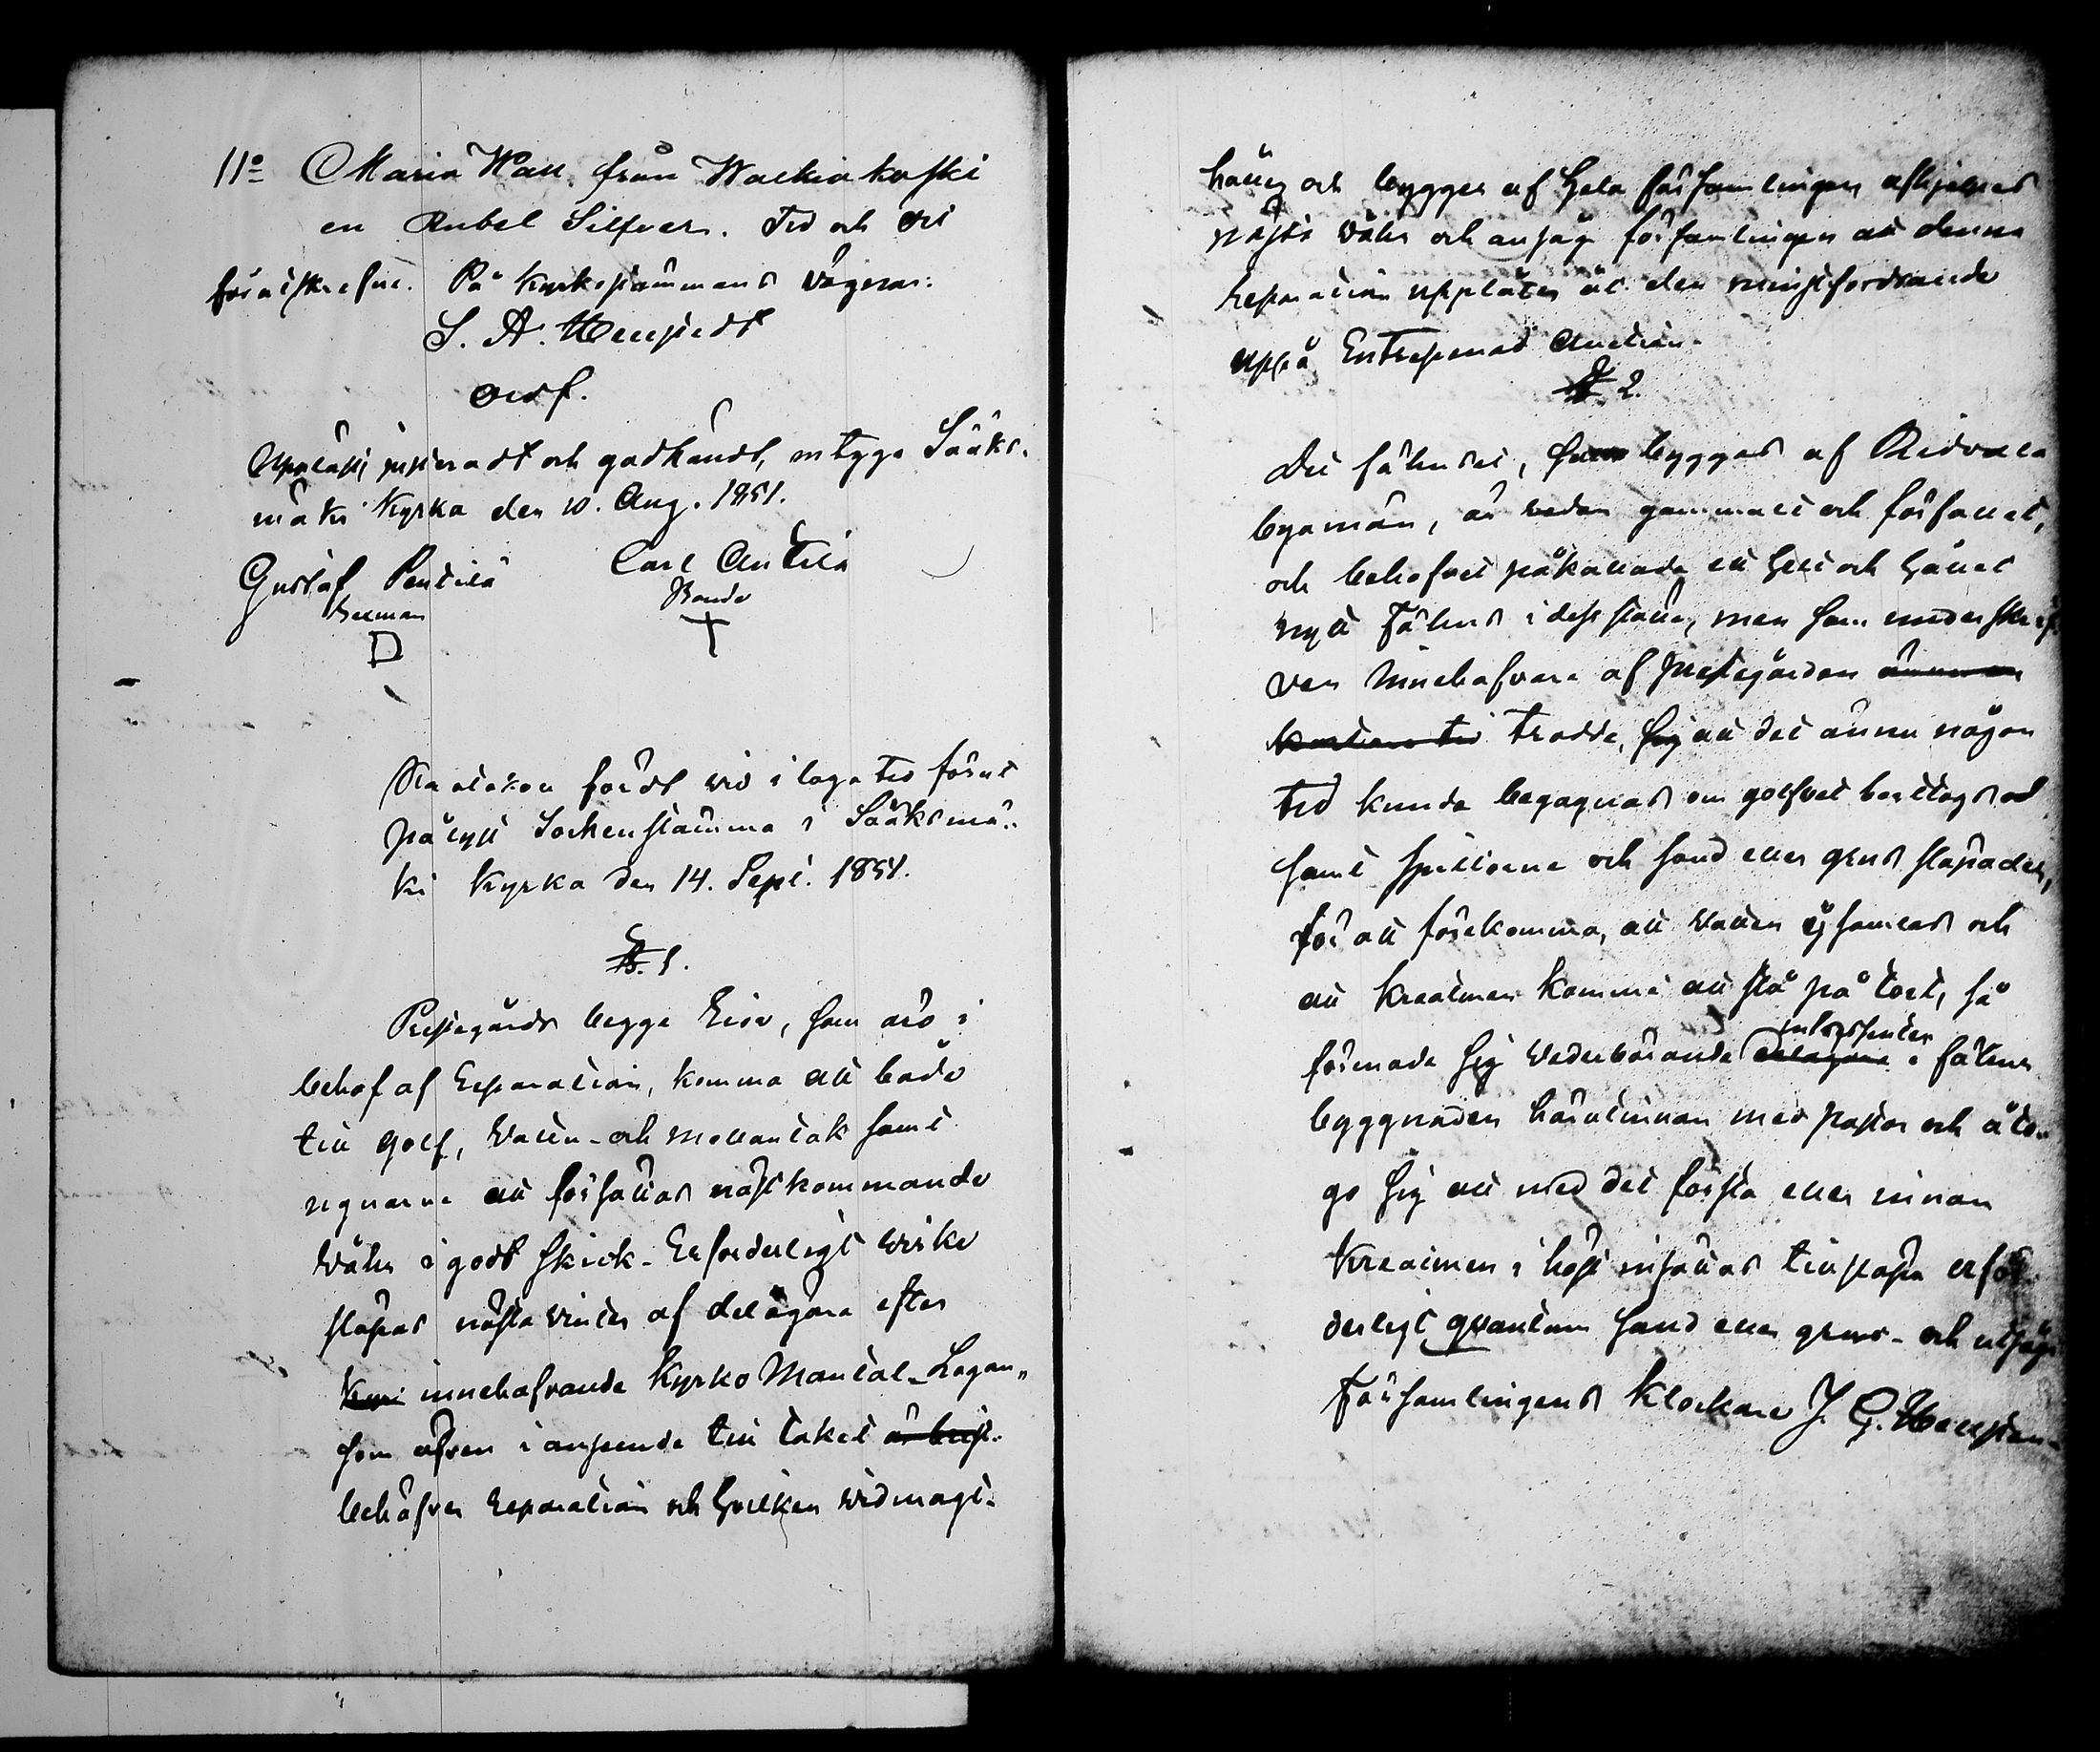 11o Maria Wall från Walkiakoski
en Rubel Silfver. Tid och ort
förutskrefne. På Kyrkostämmans vägnar:
S. A. Hellstedt
Ordf.
Uppläst, justeradt och godkändt, intyga Sääks-
mäki Kyrka den 10. Aug. 1851.
Gustaf Pentilä Carl Antila
Bonde
Protokoll fördt vid i laga tid förut
pålyst Sockenstämma i Sääksmä-
ki Kyrka den 14. Sept. 1851.
§. 1.
Prestegårds begge Rior, som äro i
behof af Reparation, komma att både
till golf, vatten- och mellantak samt
ugnarne att försättas nästkommande
vår i godt skick. Erforderligt virke
släpas nästa vinter af delägare efter
innehafvande Kyrko Mantal. Logan,
som äfven i anseende till taket
behöfver reparation och hvilken vidmagt-
hålles och bygges af hela församlingen afhjelpes
nästa vår och ansåg församlingen att denna
reparation upplåtes åt den minstfordrande
uppå Entreprenad Auction.
§. 2.
Det fähuset, som bygges af Ridvala
byamän, är redan gammalt och förfallet,
och behofvet påkallade ett helt och hållet
nytt Fähus i dess ställe, men som underskref-
ven innehafvare af prestegården
trodde, sig att det ännu någon
tid kunde begagnas om golfvet borttages
samt spiltorne och sand eller grus släpades,
för att förekomma, att vatten ej samlas och
att kreaturen komme att stå på tort, så
förenade sig vederbörande intressenter i fähus
byggnaden härutinnan med pastor och åto-
go sig att med det första eller innan
Kreaturen i höst insättas tillsläpa erfor-
derligt quantum sand eller grus - och
Församlingens Klockare J. G.